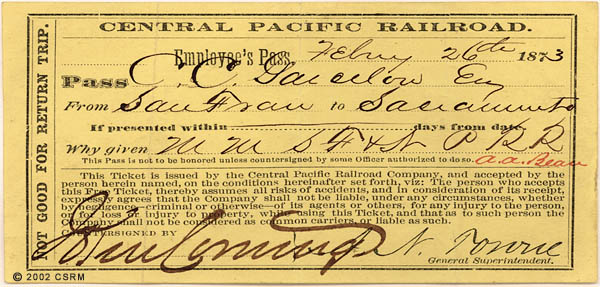 CENTRAL PACIFIC RAILROAD.
NOT GOOD FOR RETURN TRIP.
Employee's Pass, Febry 26th 1873
Pass
From San Fran to Sacramento
If presented within days from date,
Why given M M S F & N P R R
This Pass is not to be honored unless countersigned by some Officer authorized to do so. a.a. Bean
This Ticket is issued by the Central Pacific Railroad Company, and accepted by the
person herein named, on the conditions hereinafter set forth, viz: The person who accepts
this Free Ticket, thereby assumes all risks of accidents, and in consideration of its receipt,
expressly agrees that the Company shall not be liable, under any circumstances, whether
by negligence—criminal or otherwise—of its agents or others, for any injury to the person,
or for loss or injury to property, while using this Ticket, and that as to such person the
Company shall not be considered as common carriers, or liable as such.
COUNTERSIGNED BY
N. Towne
General Superintendent.
© 2002 CSRM